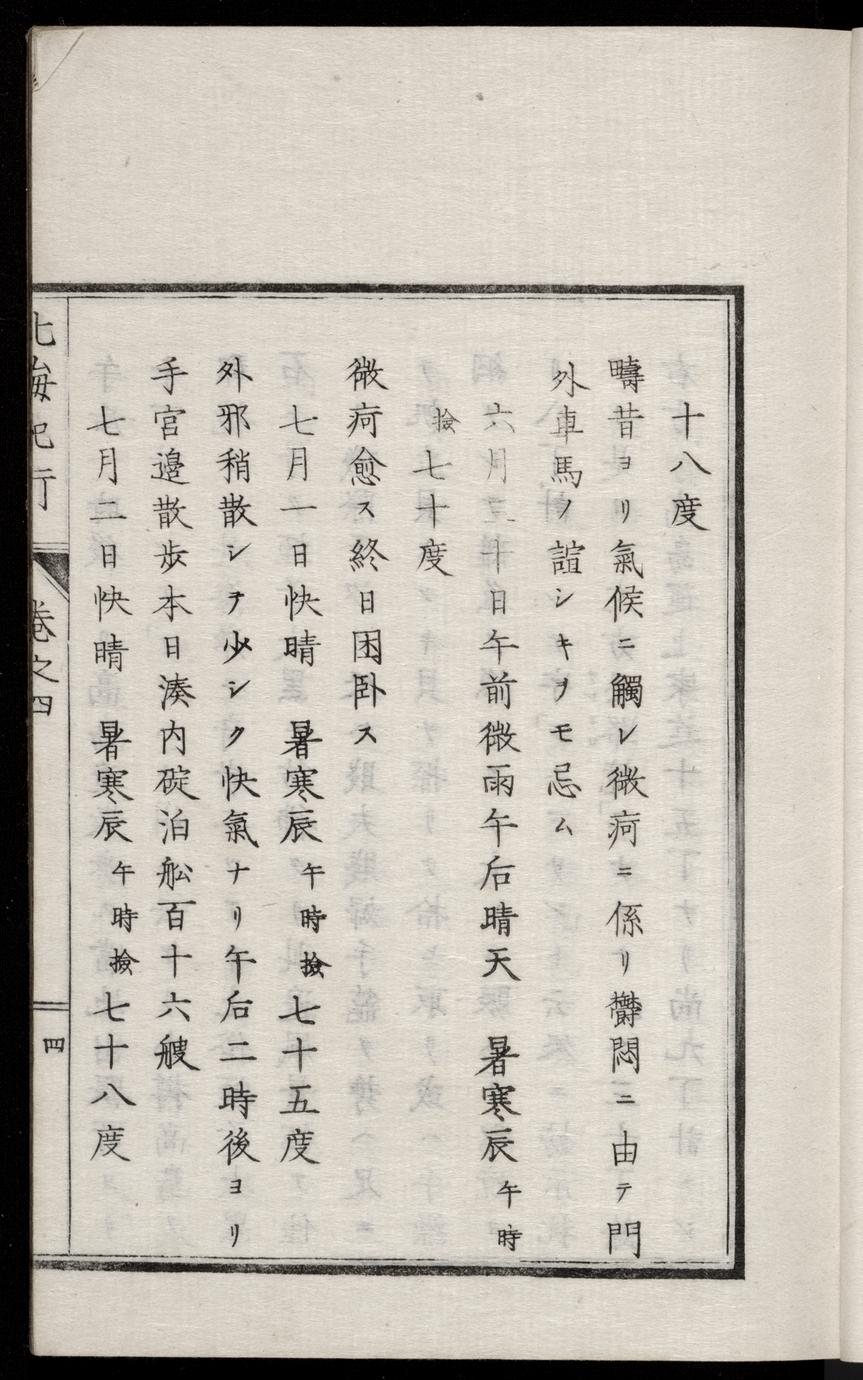 十八度
疇昔ヨリ氣候ニ觸レ微疴ニ係リ欝悶ニ由テ門
外車馬ノ諠シキヲモ忌ム
六月三十日午前微雨午后晴天　暑寒辰午時
撿七十度
微疴愈ス終日困卧ス
七月一日快晴　暑寒辰午時撿七十五度
外邪稍散シテ少シク快氣ナリ午后二時後ヨリ
手宮邊散歩本日湊内碇泊舩百十六艘
七月二日快晴　暑寒辰午時撿七十八度
北海紀行　卷之四　四